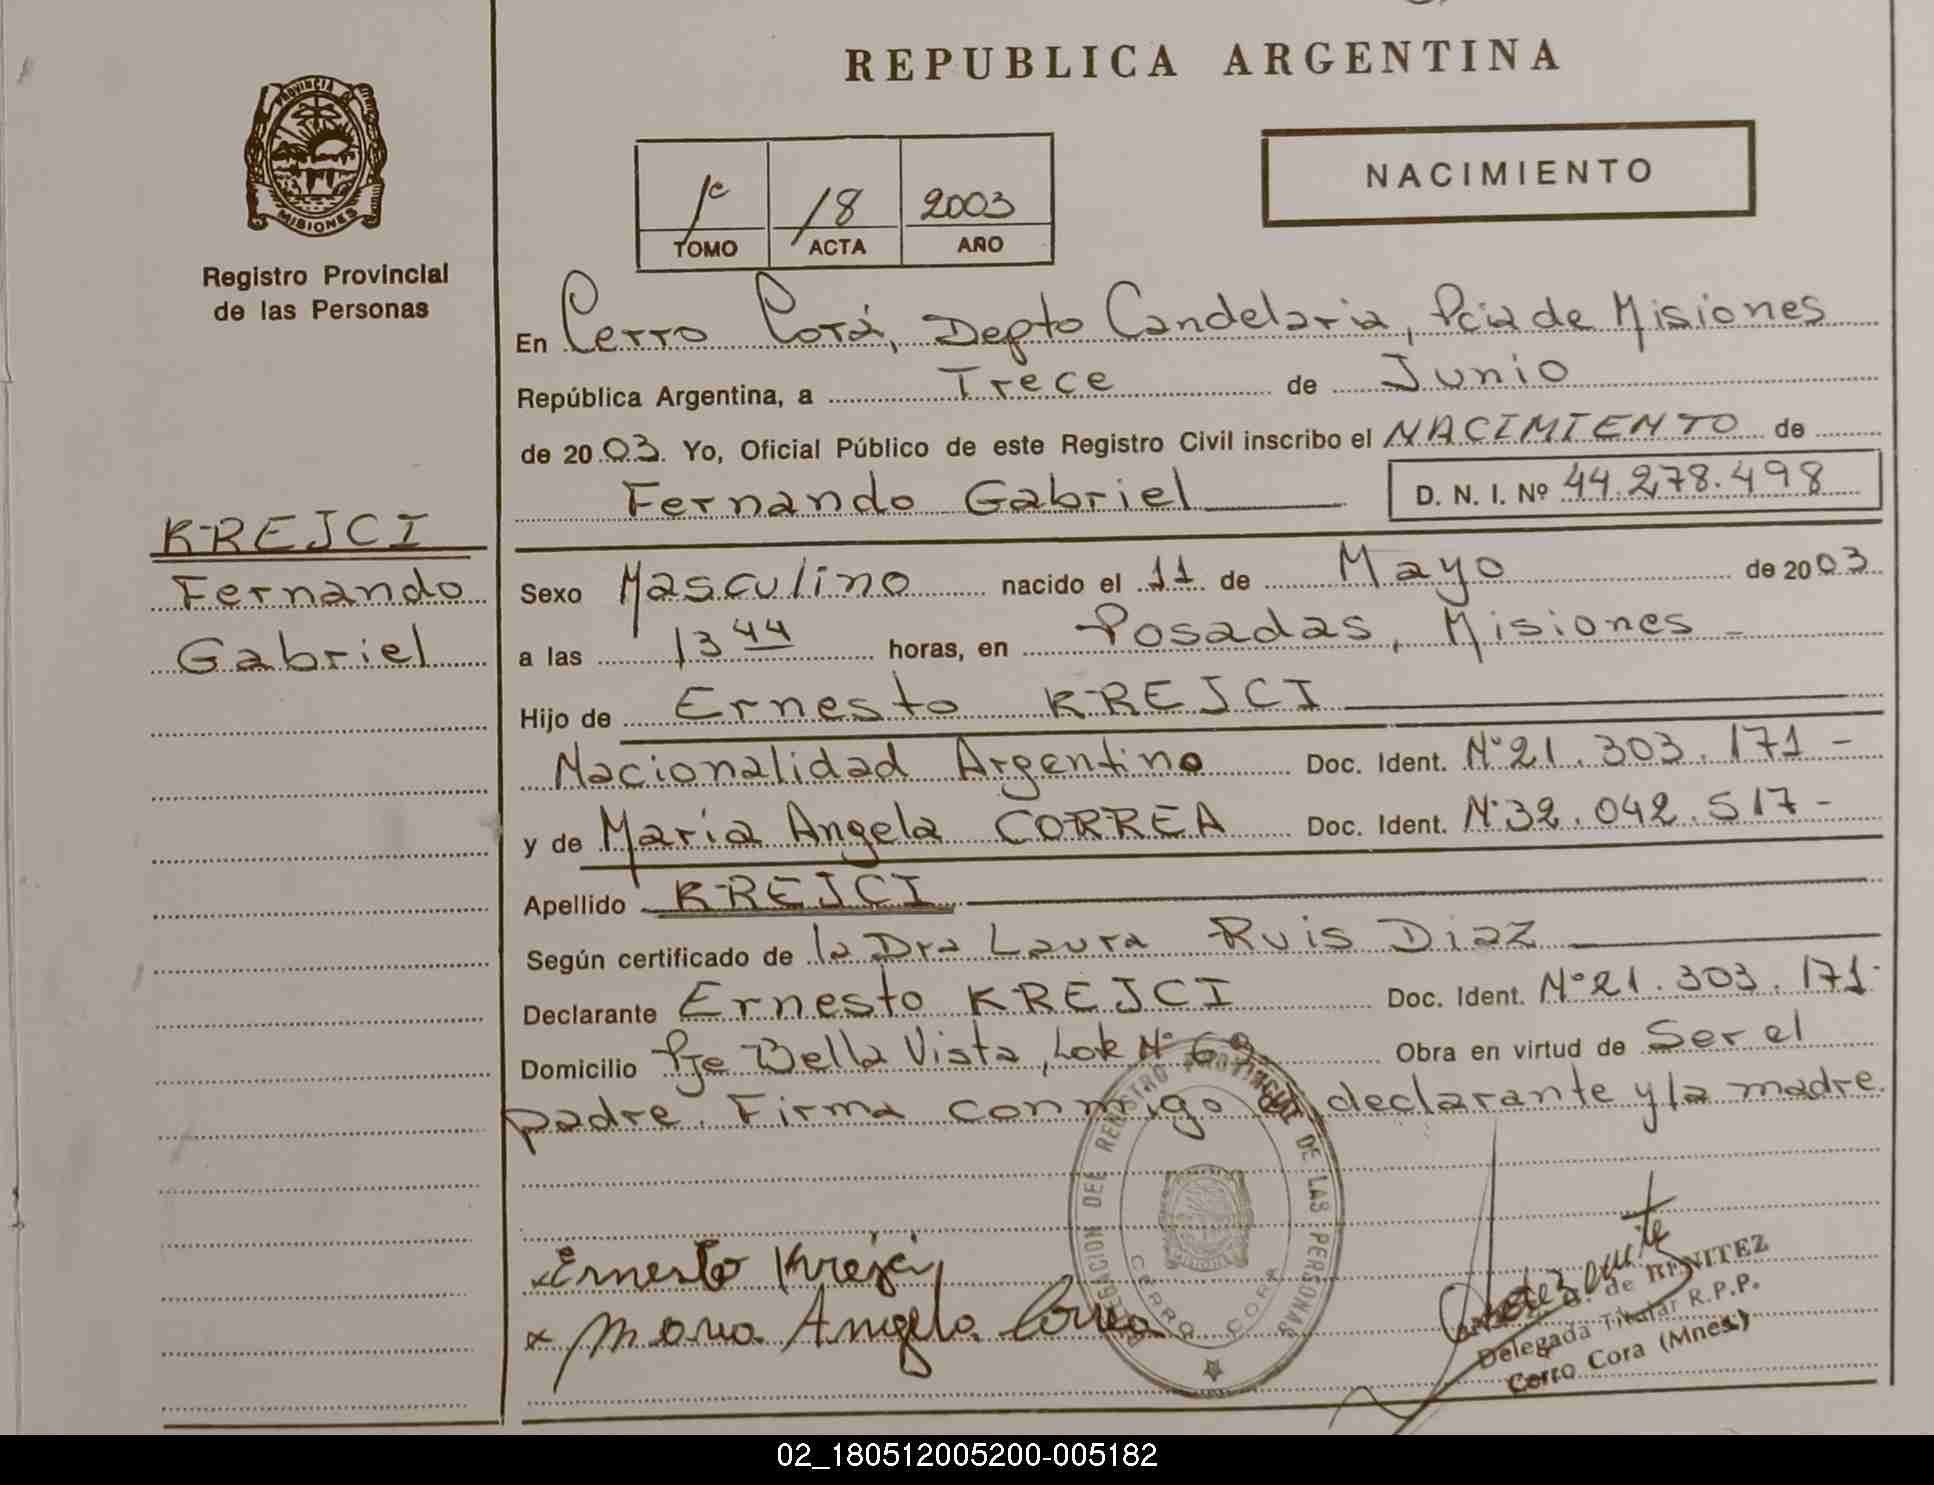 REPUBLICA ARGENTINA
PROVINCIA DE
MISIONES
Registro Provincial
de las Personas
1º 18 2003
TOMO ACTA AÑO
NACIMIENTO
En Cerro Corá, Depto Candelaria, Pcia de Misiones
República Argentina, a Trece de Junio
de 2003. Yo, Oficial Público de este Registro Civil inscribo el NACIMIENTO de
Fernando Gabriel D. N. I. Nº 44.278.498
KREJCI
Fernando
Gabriel
Sexo Masculino nacido el 11 de Mayo de 2003
a las 13 44 horas, en Posadas, Misiones -
Hijo de Ernesto KREJCI
Nacionalidad Argentino Doc. Ident. Nº21.303.171-
y de María Angela CORREA Doc. Ident. Nº32.042.517-
Apellido KREJCI
Según certificado de la Dra Laura Ruis Diaz
Declarante Ernesto KREJCI Doc. Ident. Nº21.303.171-
Domicilio Pje Bella Vista, Lote Nº 69. Obra en virtud de Ser el
padre. Firma conmigo el declarante y la madre.
DELEGACION DEL REGISTRO PROVINCIAL DE LAS PERSONAS
CERRO CORA
Ernesto Krejci
x Maria Angela Correa
de BENITEZ
Delegada Titular R.P.P.
Cerro Cora (Mnes.)
02_180512005200-005182